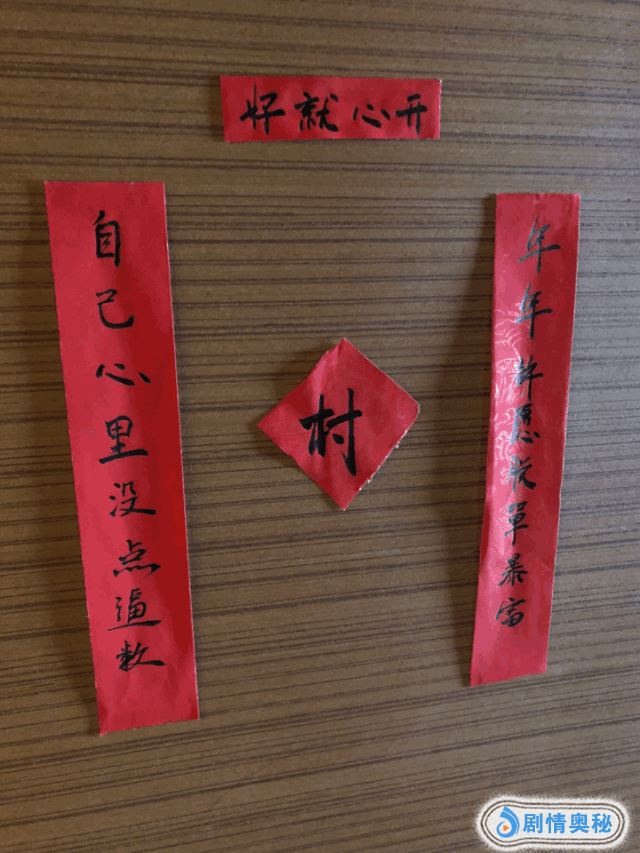 开心就好
年年许愿脱單暴富
自己心里没点逼数
村
剧情奥秘